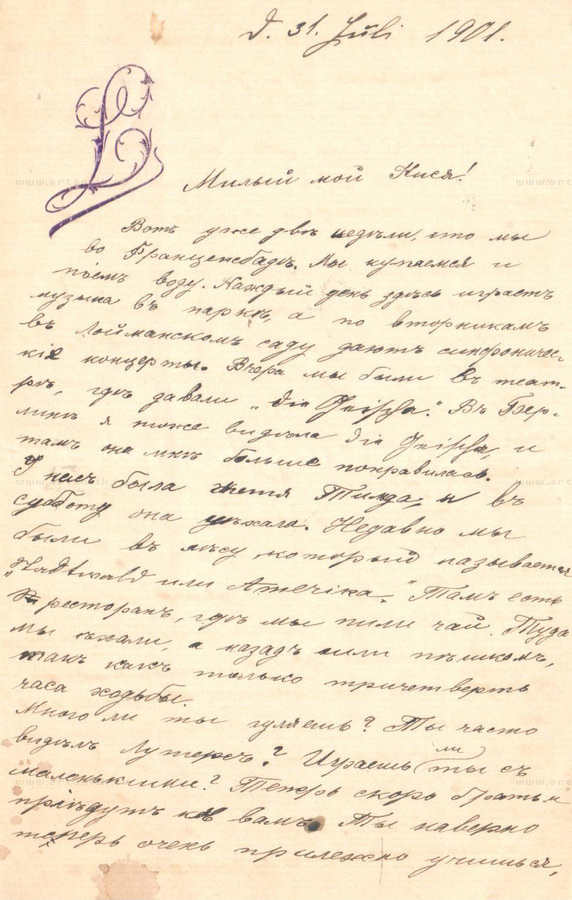 d. 31. Juli 1901.
L
Милый мой Кися!
Вотъ уже двѣ недѣли, что мы
во Франценсбадѣ. Мы купаемся и
пьемъ воду. Каждый день здѣсь играетъ
музыка въ паркѣ, а по вторникамъ
въ Лойманскомъ саду даютъ симфоничес-
кіе концерты. Вчера мы были въ теат-
рѣ, гдѣ давали „die Geisha“. Въ Бер-
линѣ я тоже видѣла die Geisha, и
тамъ она мнѣ больше понравилась.
У насъ была тетя Тильда, и въ
субботу она уѣхала. Недавно мы
были въ лѣсу, который называется
„Stadtwald или Америка.“ Тамъ есть
ресторанъ, гдѣ мы пили чай. Туда
мы ѣхали, а назадъ шли пѣшкомъ,
такъ какъ только тричетверть
часа ходьбы.
Много ли ты гуляешь? Ты часто
видѣлъ ? Играешь ли ты съ
маленькими? Теперь скоро братья
пріѣдутъ къ вамъ. Ты наверно
теперь очень прилежно учишься,